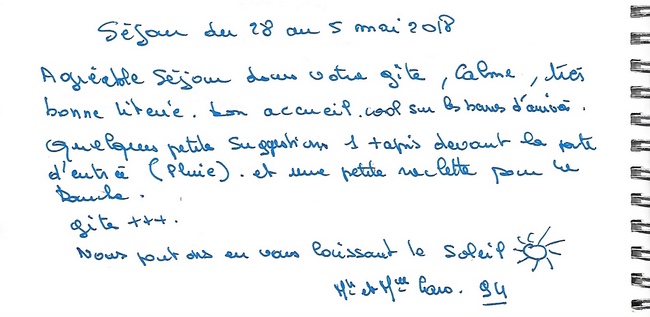 Séjour du 28 au 5 mai 2018
Agréable séjour dans votre gîte, Calme, très
bonne literie. bon accueil. cool sur les heures d'arrivée.
quelques petite suggestions 1 tapis devant la porte
d'entrée (pluie). et une petite raclette pour le
Douche.
gîte +++.
Nous partons en vous laissant le soleil
Mr et Mme . 94